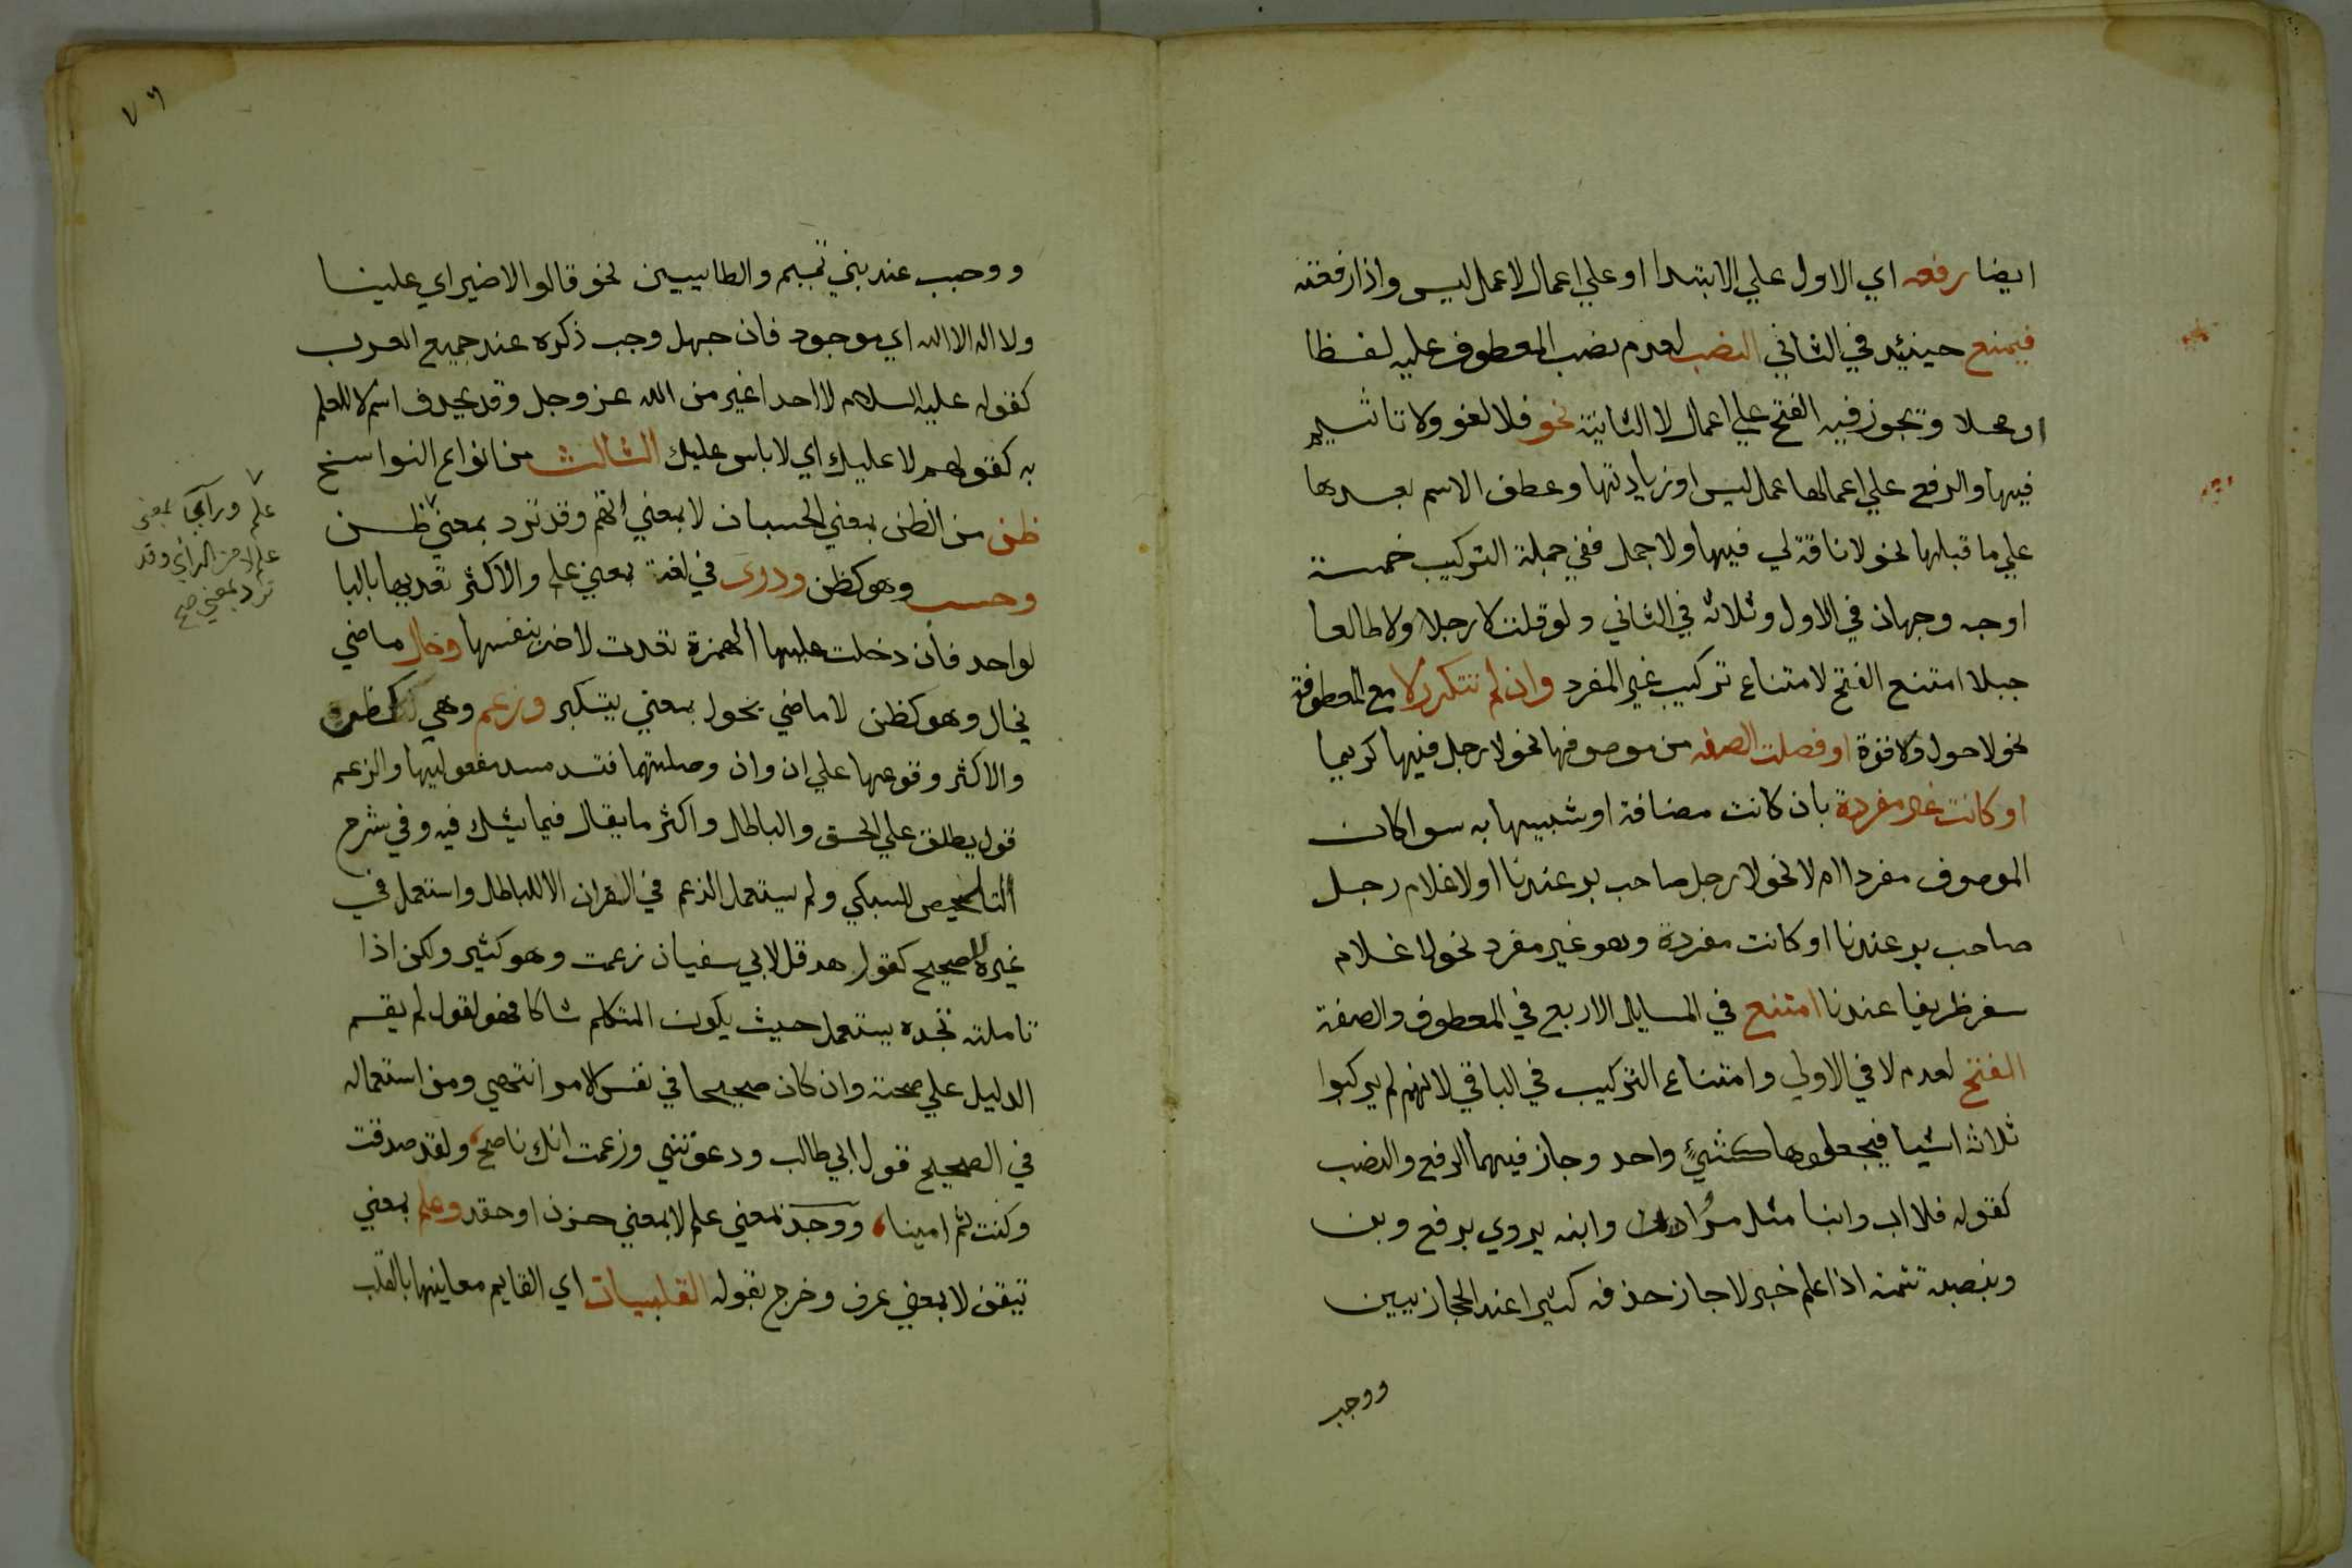 ايضا رفعه اي الاول علي الابتدا او علي اعمال لا عمل ليس واذا رفعته
فيمتنع حينئد في الثاني النصب لعدم نصب المعطوف عليه لفظا
او محلا ويجوز فيه الفتح علي اعمال لا الثانية نحو فلا لغو ولا تاثيم
فيها والرفع علي اعمالها عمل ليس او زيادتها وعطف الاسم بعدها
علي ما قبلها نحو لا ناقة لي فيها ولا جمل ففي جملة التركيب خمسة
اوجه وجهان في الاول وثلاثة في الثاني ولو قلت لا رجلا ولا طالعا
جبلا امتنع الفتح لامتناع تركيب غير المفرد وان لم تتكرر لا مع المعطوفة
نحو لا حول ولا قوة او فصلت الصفه من موصوفها نحو لا رجل فيها كريما
او كانت غير مفردة بان كانت مضافة او شبيها به سوا كان
الموصوف مفردا ام لا نحو لا رجل صاحب بر عندنا او لا غلام رجل
صاحب بر عندنا او كانت مفردة وهو غير مفرد نحو لا غلام
سفر ظريفا عندنا امتنع في المسايل الاربع في المعطوف والصفة
الفتح لعدم لا في الاولي وامتناع التركيب في الباقي لانهم لم يركبوا
ثلاثة اشيا فيجعلوها كشيء واحد وجاز فيهما الرفع والنصب
كقوله فلا اب وابنا مثل مروان وابنه يروي برفع وبن
وبنصبه تتمة اذا علم خبر لا جاز حذفه كثيرا عند الحجازيين
ووجب
٧٦
ووجب عند بني تميم والطاييين نحو قالوا لا ضير اي علينا
ولا اله الا الله اي موجود فان جهل وجب ذكره عند جميع العرب
كقوله عليه السلام لا احد اغير من الله عز وجل وقد يحذف اسم لا للعلم
به كقولهم لا عليك اي لا باس عليك الثالث من انواع النواسخ
ظن من الظن بمعني الحسبان لا بمعني اتهم وقد ترد بمعني ٧ ظن
وحسب وهو كظن ودري في لغة بمعني علم والاكثر تعديها بالبا
لواحد فان دخلت عليها الهمزة تعدت لاخر بنفسها وخال ماضي
يخال وهو كظن لا ماضي يخول بمعني يتكبر وزعم وهي كظن
والاكثر وقوعها علي ان وان وصلتهما فتسد مسد مفعوليها والزعم
قول يطلق علي الحق والباطل واكثر ما يقال فيما يشك فيه وفي شرح
التلخيص للسبكي ولم يستعمل الزعم في القران الا للباطل واستعمل في
غيره للصحيح كقول هرقل لابي سفيان زعمت وهو كثير ولكن اذا
تاملته تجده يستعمل حيث يكون المتكلم شاكا فهو كقول لم يقم
الدليل علي صحته وان كان صحيحا في نفس الامر انتهي ومن استعماله
في الصحيح قول ابي طالب ودعوتني وزعمت انك ناصح، ولقد صدقت
وكنت ثم امينا، ووجد بمعني علم لا بمعني حزن او حقد وعلم بمعني
تيقن لا بمعني عرف وخرج بقوله القلبيات اي القايم معانيها بالقلب
٧
علم وراي بمعني
علم لا من الراي وقد
ترد بمعني صح